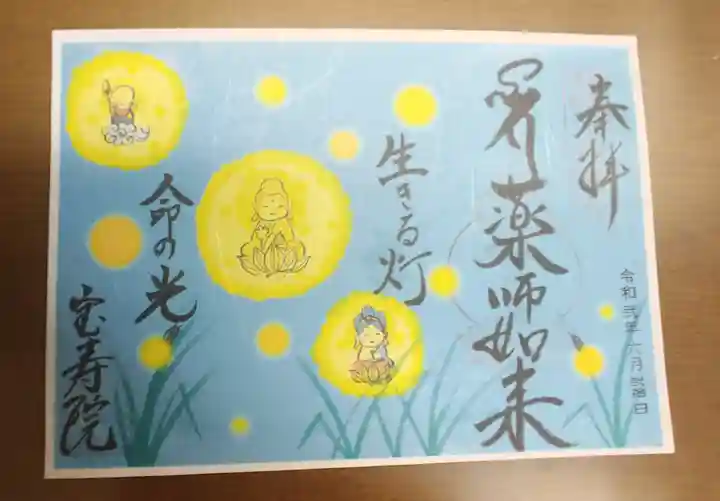 奉拝
令和弐年六月弐拾日
薬師如来
生きる灯
命の光
宝寿院